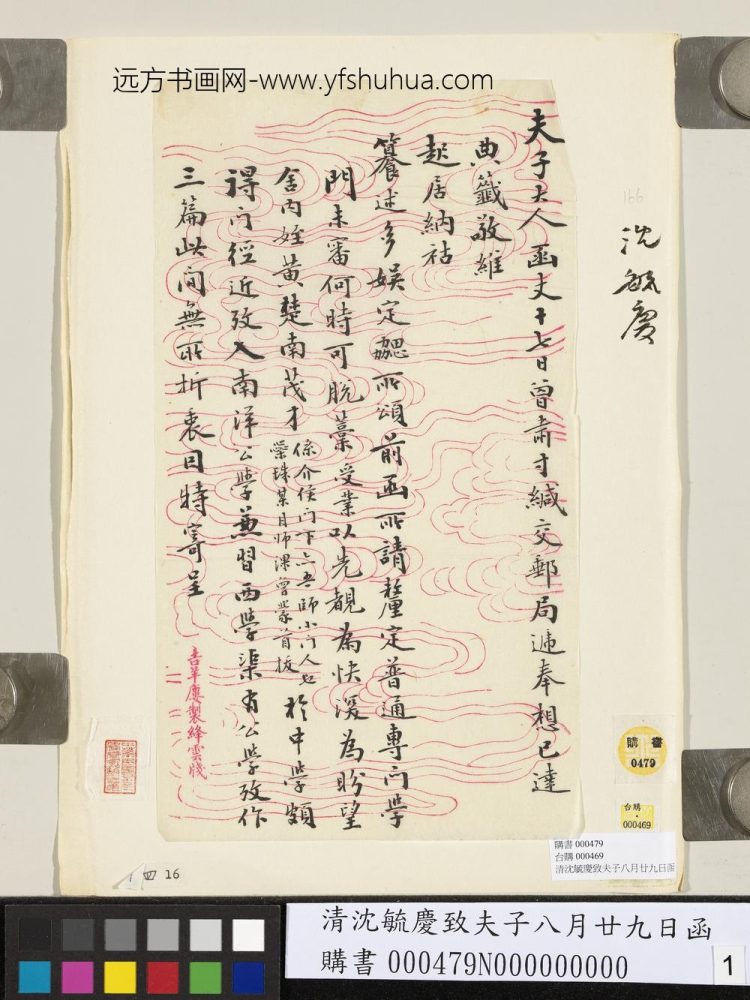 远方书画网-www.yfshuhua.com
166
沈毓慶
夫子大人函丈十七日曾肅寸緘交郵局遞奉想已達
典籤敬維
起居納祜
簒述多娱定勰所頌前函所請釐定普通專門學
門未審何時可脱藁受業以先覩為快深為盼望
舍内姪黄楚南茂才
係介侯門下亦吾師小門人也
蘂珠某月師課曾蒙首拔
於中學頗
得門徑近攷入南洋公學兼習西學渠有公學攷作
三篇此間無所折衷因特寄呈
喜羊廔製絳雲牋
購書
0479
台購
000469
購書 000479
台購 000469
清沈毓慶致夫子八月廿九日函
四 16
清沈毓慶致夫子八月廿九日函
購書 000479N000000000
1